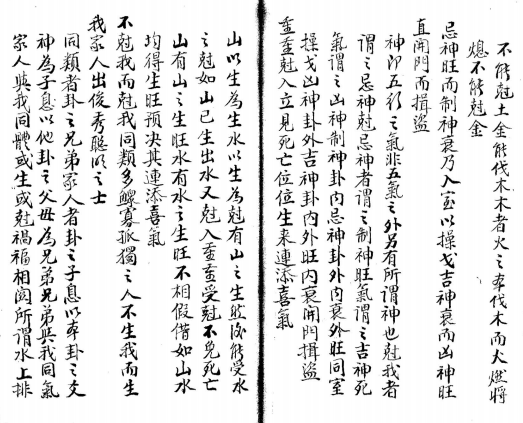 不能尅土金能伐木木者火之本伐木而火燃將
熄不能尅金
忌神旺而制神衰乃入室以操戈吉神衰而凶神旺
直開門而揖盜
神即五行之氣非五氣之外另有所謂神也尅我者
謂之忌神尅忌神者謂之制神旺氣謂之吉神死
氣謂之凶神制神卦内忌神卦外内衰外旺同室
操戈凶神卦外吉神卦内外旺内衰開門揖盜
重重尅入立見死亡位位生来連添喜氣
山以生為生水以生為尅有山之生然後能受水
之尅如山已生出水又尅入重重受尅不免死亡
山有山之生旺水有水之生旺不相假借如山水
均得生旺預决其連添喜氣
不尅我而尅我同類多鰥寡孤獨之人不生我而生
我家人出俊秀聰明之士
同類者卦之兄弟家人者卦之子息以本卦之父
神為子息以他卦之父母為兄弟兄弟與我同氣
家人與我同體或生或尅禍福相関所謂水上排